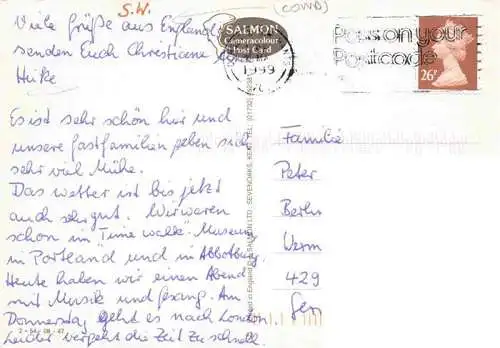 S.W.
(COWD)
Viele Grüße aus England
senden Euch Chrestiane &
Heike
SALMON
Cameracolour
Post Card
1999
Pass on your
Postcode
26P
Es ist sehr schön hier und
unsere Gastfamilien geben sich
sehr viel Mühe.
Das Wetter ist bis jetzt
auch sehr gut. Wir waren
schon im "Time walk"-Museum
in Portland und in Abbotsbury.
Heute haben wir einen Abend
mit Musik und Gesang. Am
Donnerstag geht es nach London
Leider vergeht die Zeit zu schnell.
Familie
Peter
Berlin
Werm
429
Gen
SALMON LTD., SEVENOAKS, KENT. TEL: (01732)
2-54-08-47